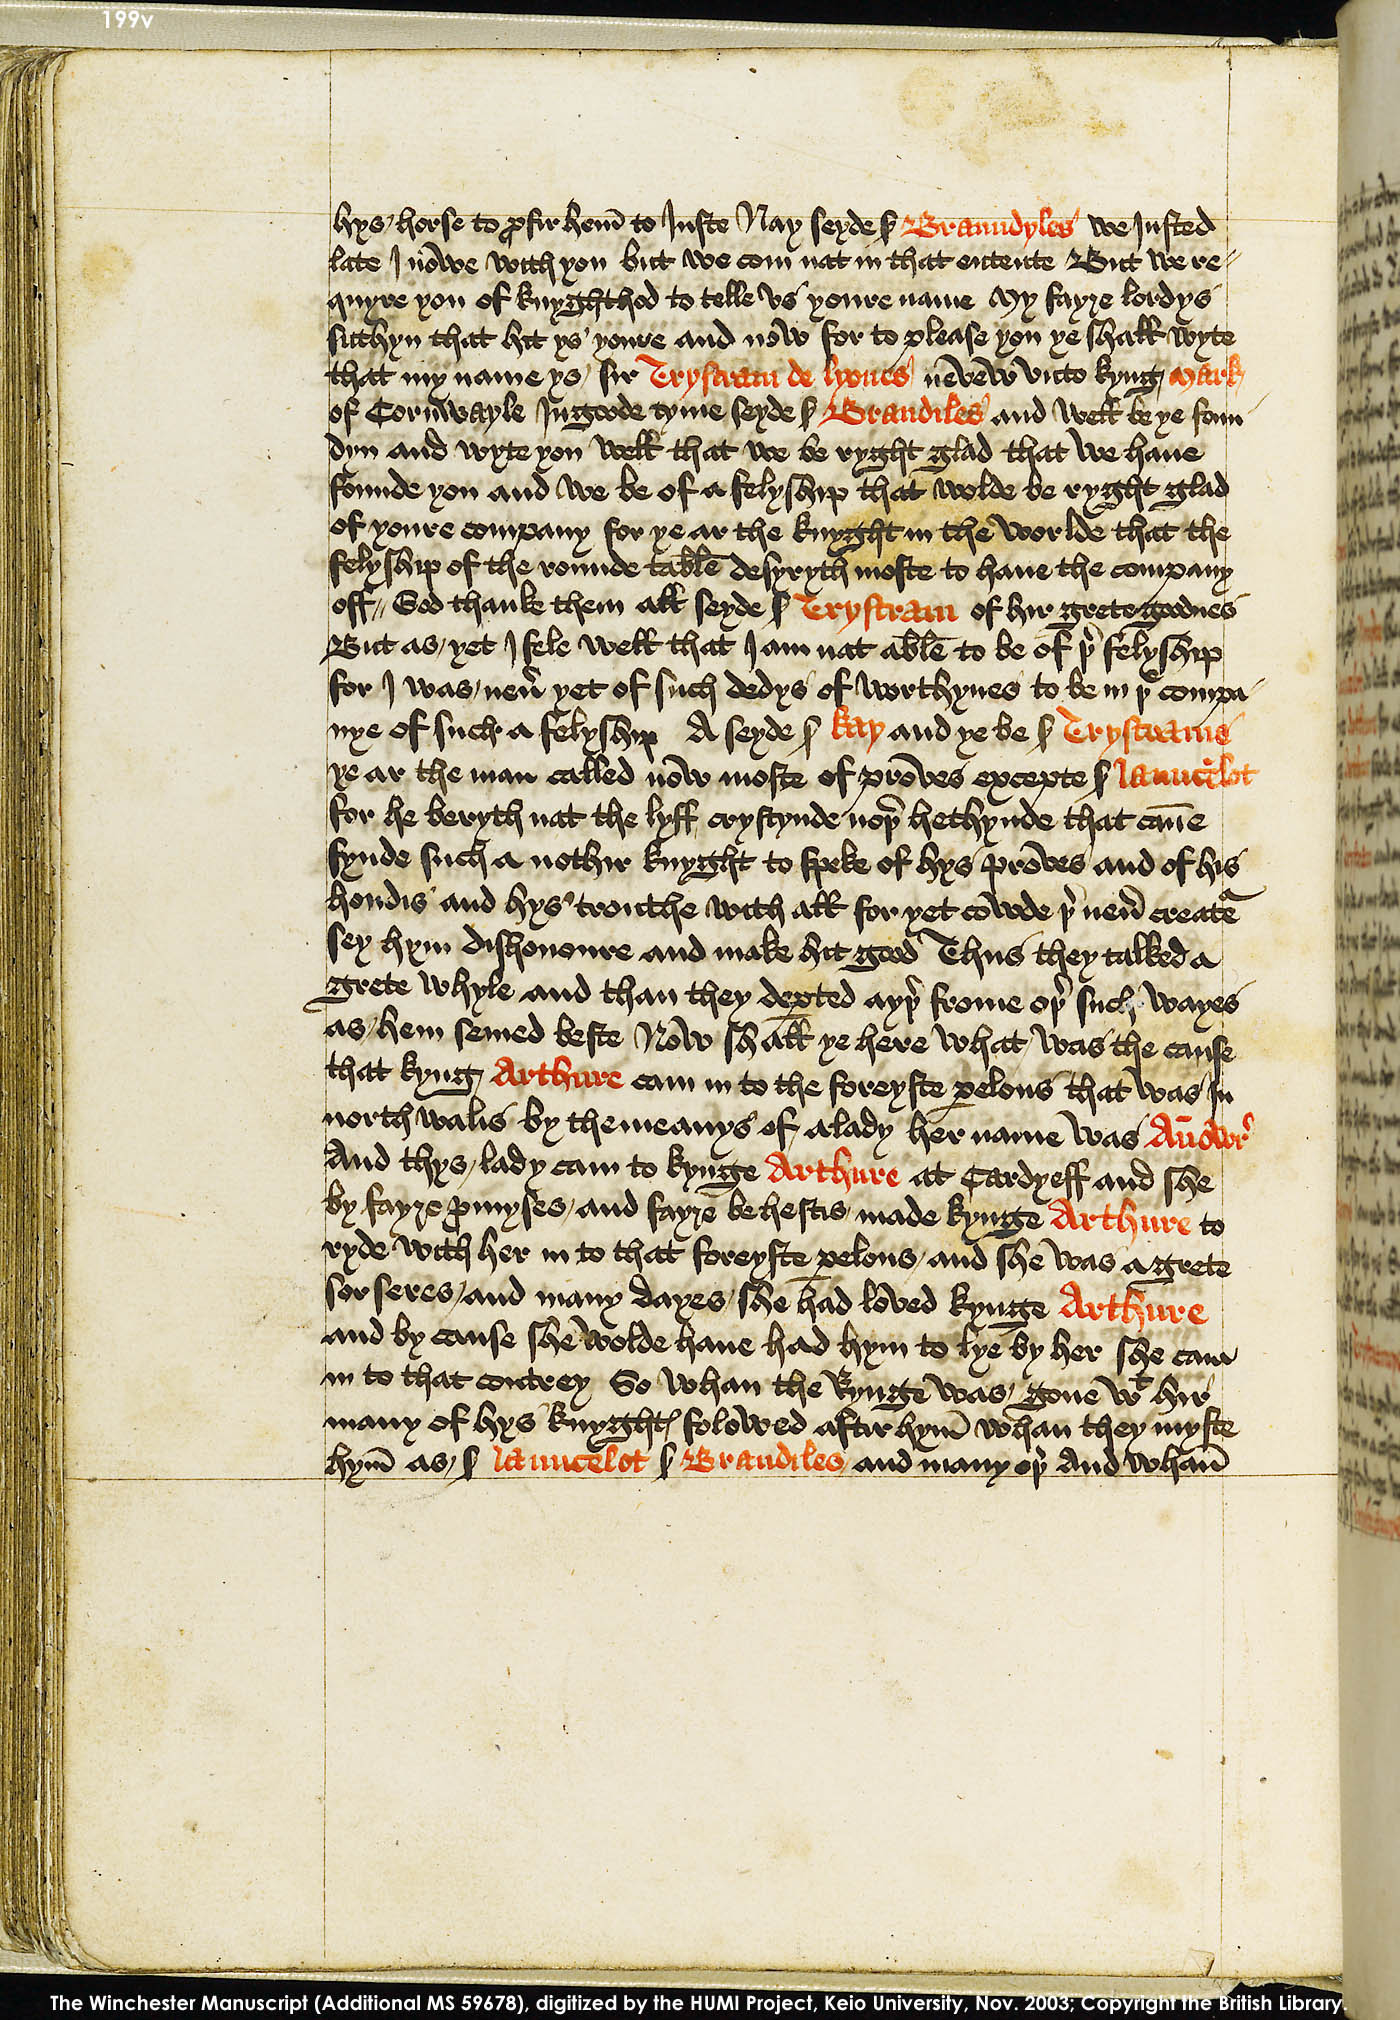 199v
hys horse to ꝓfir hem̄ to Juste Nay seyde ẜ Braundyles we Justed
late J nowe with you but we com nat in that entente But we re⸗
quyre you of knyghthod to telle vs youre name My fayre lordys
sithyn that hit ys youre and now for to please you ye shall wyte
that my name ys sir Trystram de lyones nevew vnto kyng Mark
of Cornwayle In goode tyme seyde ẜ Brandiles and well be ye foun
dyn and wyte you well that we be ryght glad that we haue
founde you and we be of a felyship that wolde be ryght glad
of youre company for ye ar the knyght in the worlde that the
felyship of the rounde table desyryth moste to haue the company
off // God thanke them all seyde ẜ Trystram of hir grete goodnes
But as yet J fele well that J am nat able to be of þ͛ felyship
for J was neu͛ yet of such dedys of worthynes to be in þe compa
nye of such a felyship A seyde ẜ kay and ye be ẜ Trystrams
ye ar the man called now moste of proves excepte ẜ launcelot
for he beryth nat the lyff crystynde noþ͛ hethynde that can̄e
fynde such a nothir knyght to speke of hys proves and of his
hondis and hys trouthe with all for yet cowde þ͛ neu͛ creatᵃe
sey hym dishonoure and make hit good Thus they talked a
grete whyle and than they deꝑted ayþ͛ frome oþ͛ such wayes
as hem semed beste Now shall ye here what was the cause
that kyng Arthure cam in to the foreyste ꝑelous that was in
north walis by the meanys of a lady her name was An̄owr͛
And thys lady cam to kynge Arthure at Cardyeff and she
by fayre ꝓmyses and fayre behestis made kynge Arthure to
ryde with her in to that foreyste ꝑelous and she was a grete
sorseres and many dayes she had loved kynge Arthure
and by cause she wolde haue had hym to lye by her she cam
in to that contrey So whan the kynge was gone wᵗ hir
many of hys knyghtꝭ folowed aftir hym̄ whan they myste
hym̄ as ẜ launcelot ẜ Brandiles and many oþ͛ And whan̄
The Winchester Manuscript (Additional MS 59678), digitized by the HUMI Project, Keio University, Nov. 2003; Copyright the British Library.